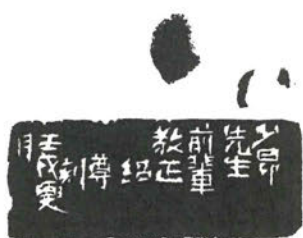 少昂
先生
前輩
教正
紹
刻
壬戌夏
月